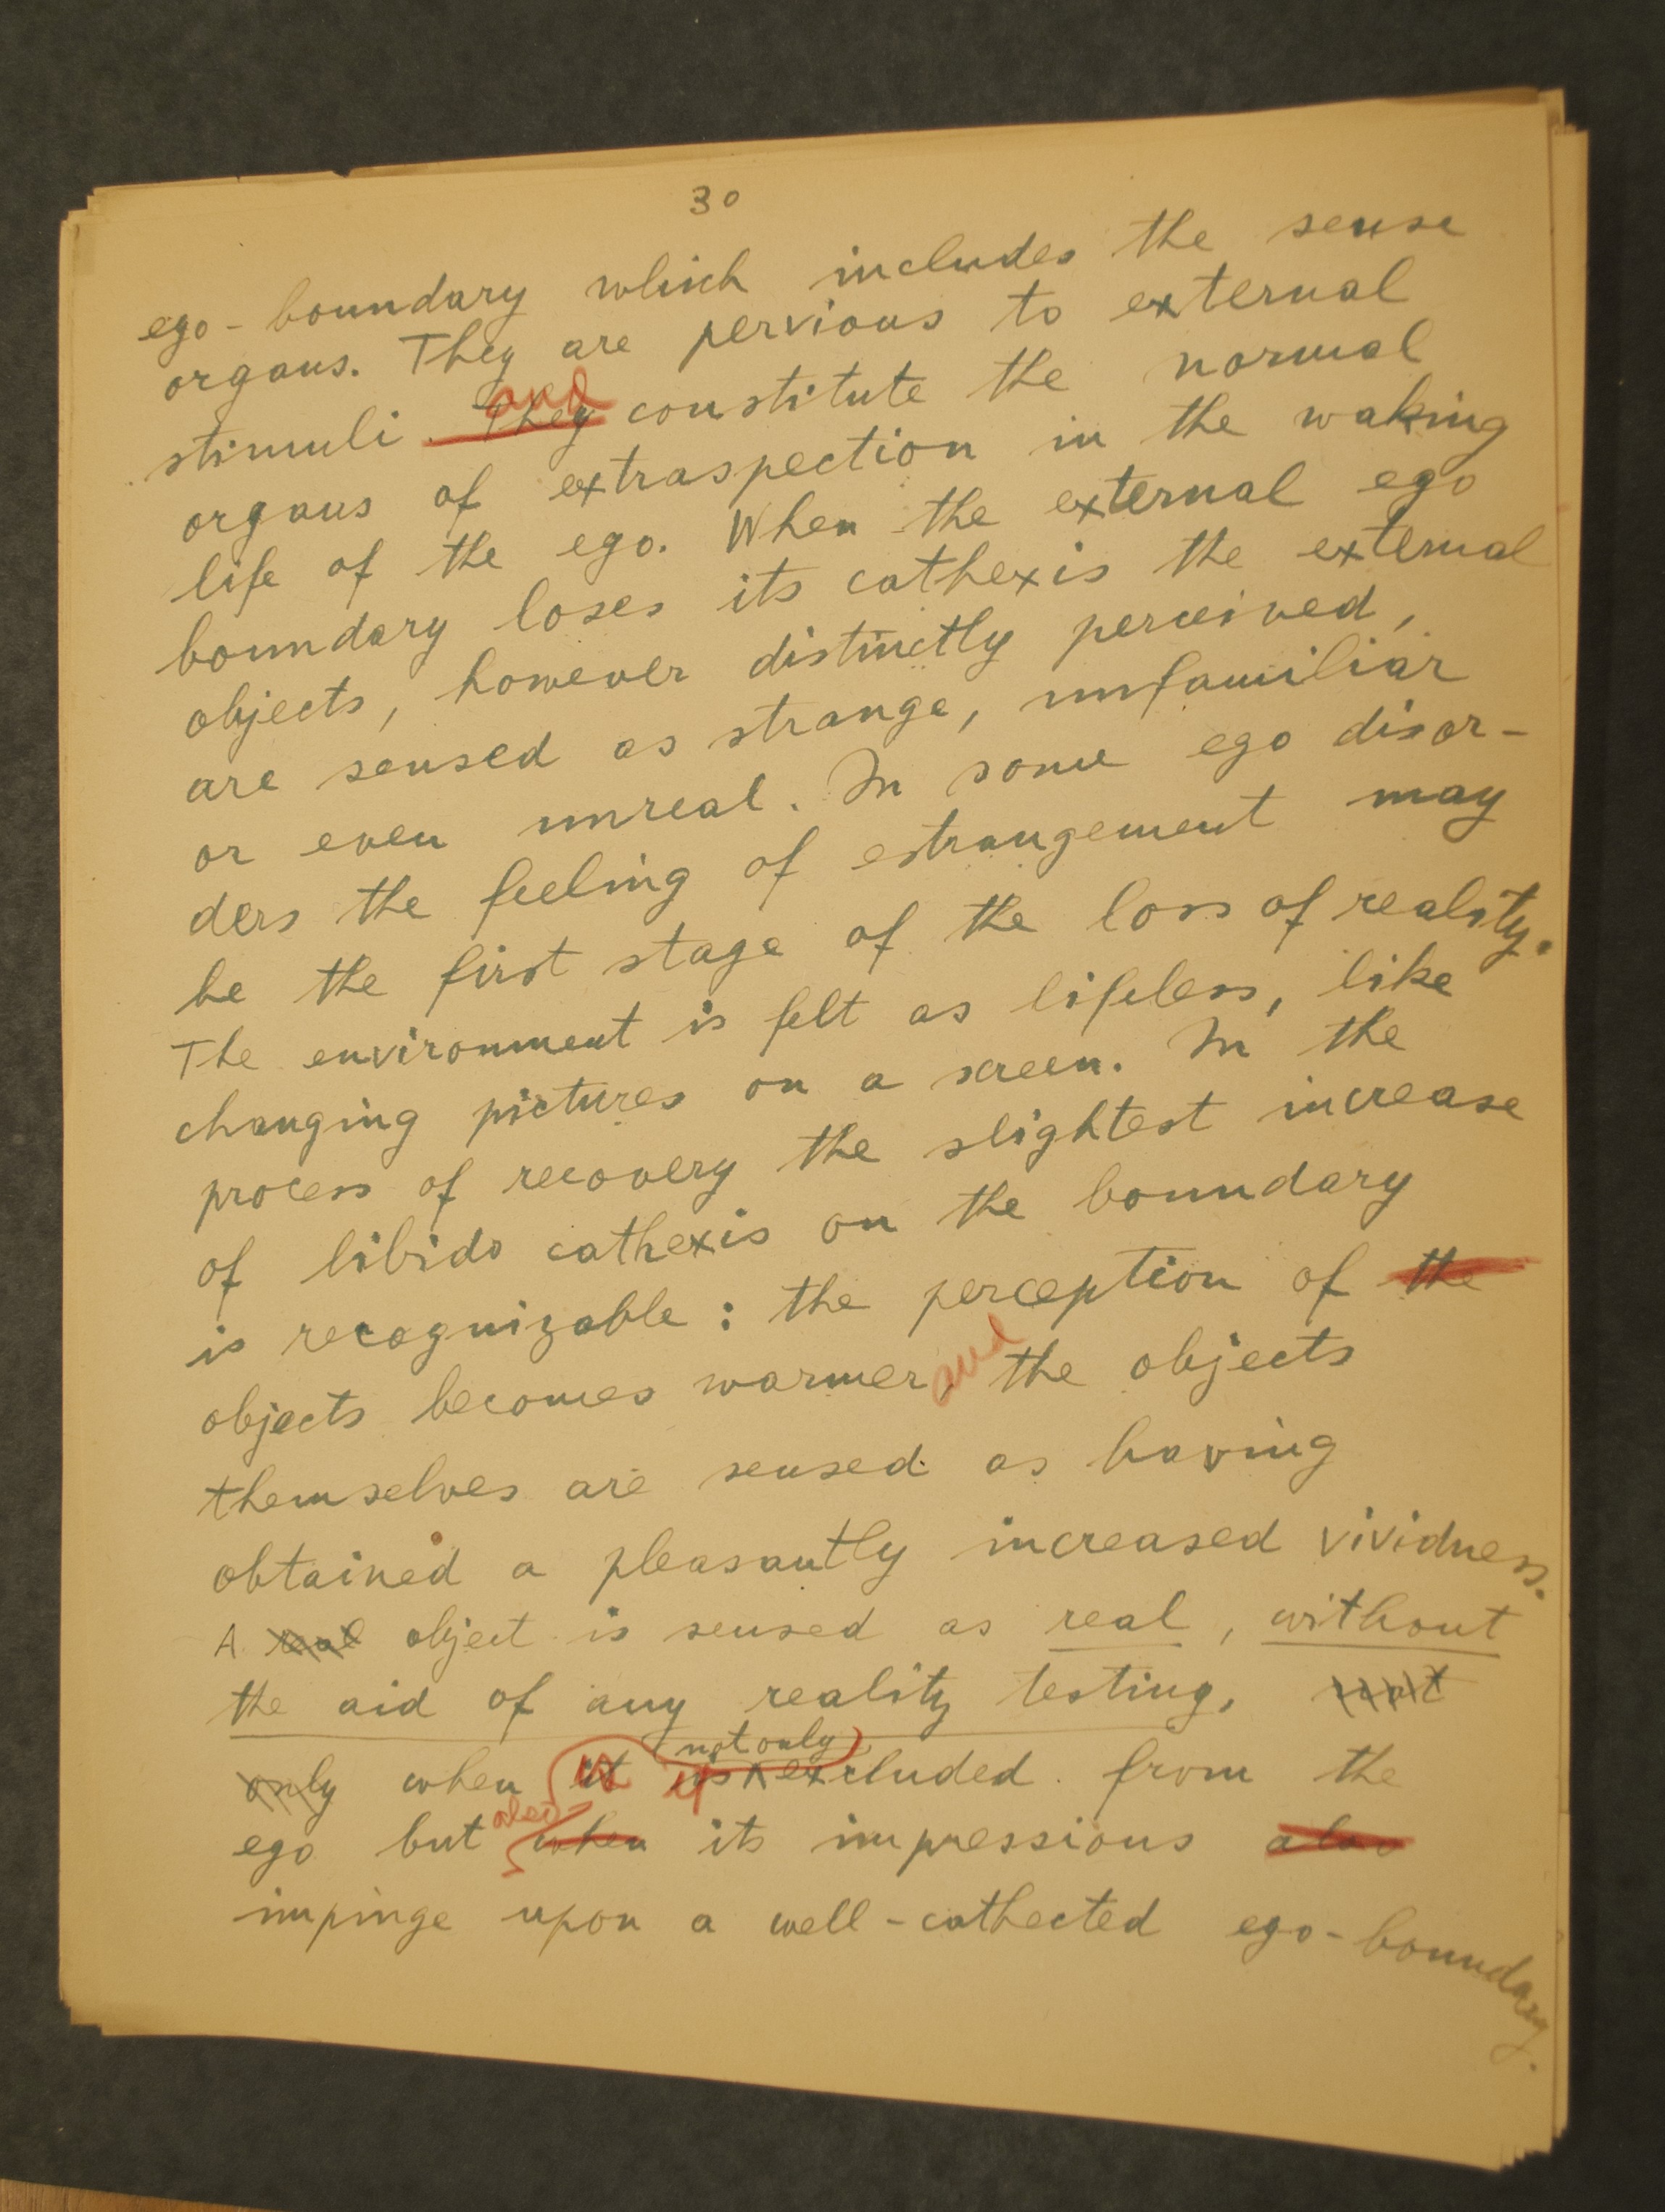 30
ego-boundary which includes the sense
organs. They are pervious to external
and
stimuli. They constitute the normal
organs of extraspection in the waking
life of the ego. When the external ego
boundary loses its cathexis the external
objects, however distinctly perceived,
are sensed as strange, unfamiliar
or even unreal. In some ego disor-
ders the feeling of estrangement may
be the first stage of the loss of reality.
The environment is felt as lifeless, like
changing pictures on a screen. In the
process of recovery the slightest increase
of libido cathexis on the boundary
is recognizable: the perception of the
objects becomes warmer, and the objects
themselves are sensed as having
obtained a pleasantly increased vividness.
A real object is sensed as real, without
the aid of any reality testing, not
not only
only when it is excluded from the
also
ego but when its impressions also
impinge upon a well-cathected ego-boundary.